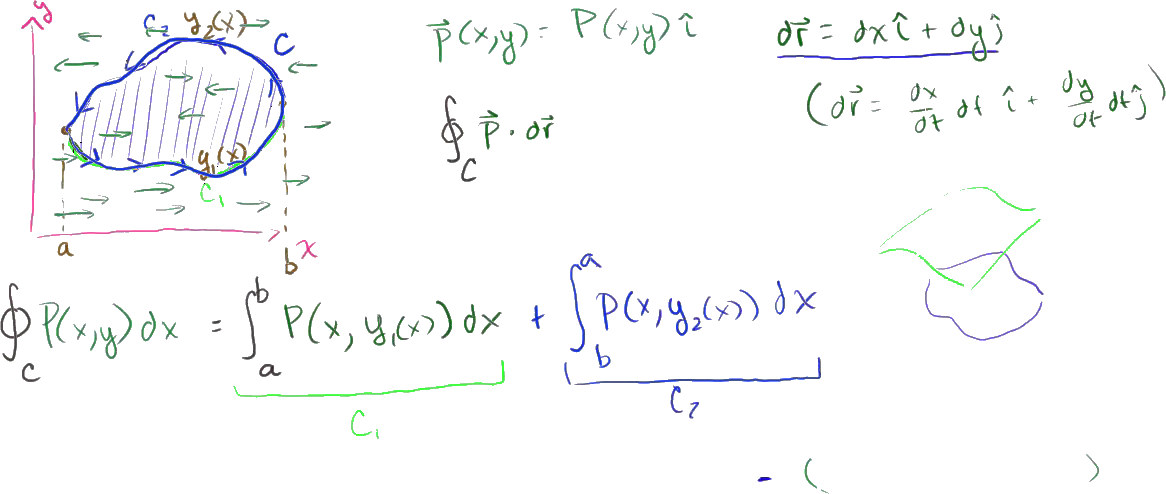 y
C₂ y₂(x) C
y₁(x)
C₁
a b x
P⃗(x,y) = P(x,y) î
dr⃗ = dx î + dy ĵ
(dr⃗ = dx/dt dt î + dy/dt dt ĵ)
∮_C P⃗ · dr⃗
∮_C P(x,y) dx = ∫_a^b P(x, y₁(x)) dx + ∫_b^a P(x, y₂(x)) dx
C₁ C₂
- ( )